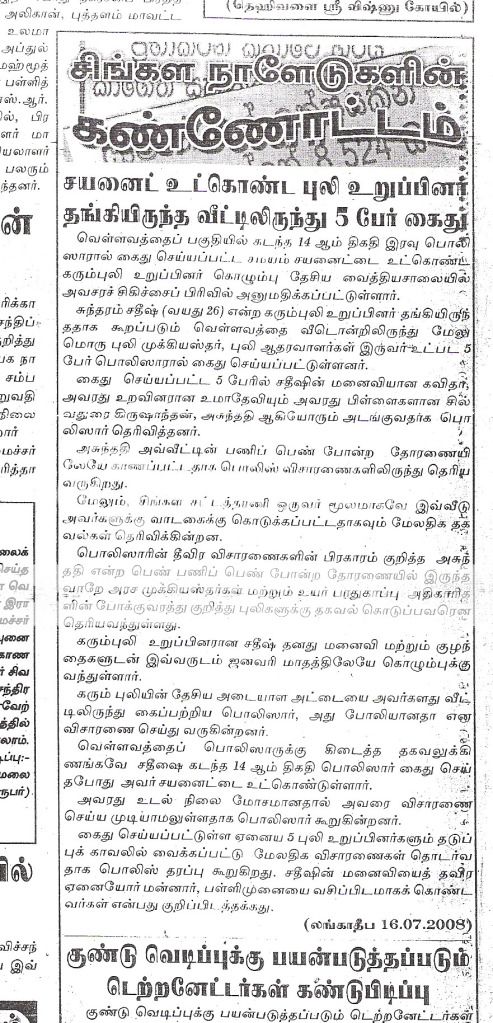 (நெஹிவளை ஸ்ரீ விஷ்ணு கோயில்)
அலிகான், புத்தளம் மாவட்ட
உலமா
அப்துல்
மஹ்மூத்
பள்ளித்
எஸ்.ஆர்.
பலரும்
சிங்கள நாளேடுகளின்
கண்ணோட்டம்
சயனைட் உட்கொண்ட புலி உறுப்பினர்
தங்கியிருந்த வீட்டிலிருந்து 5 பேர் கைது
வெள்ளவத்தைப் பகுதியில் கடந்த 14 ஆம் திகதி இரவு பொலி
ஸாரால் கைது செய்யப்பட்ட சமயம் சயனைட்டை உட்கொண்ட
கரும்புலி உறுப்பினர் கொழும்பு தேசிய வைத்தியசாலையில்
அவசரச் சிகிச்சைப் பிரிவில் அனுமதிக்கப்பட்டுள்ளார்.
சுந்தரம் சதீஷ் (வயது 26) என்ற கரும்புலி உறுப்பினர் தங்கியிருந்
ததாக கூறப்படும் வெள்ளவத்தை வீடொன்றிலிருந்து மேலு
மொரு புலி முக்கியஸ்தர், புலி ஆதரவாளர்கள் இருவர் உட்பட 5
பேர் பொலிஸாரால் கைது செய்யப்பட்டுள்ளனர்.
கைது செய்யப்பட்ட 5 பேரில் சதீஷின் மனைவியான கவிதா,
அவரது உறவினரான உமாதேவியும் அவரது பிள்ளைகளான சில்
வதுரை கிருஷாந்தன், அசுந்ததி ஆகியோரும் அடங்குவதாக பொ
லிஸார் தெரிவித்தனர்.
அசுந்ததி அவ்வீட்டின் பணிப் பெண் போன்ற தோரணையி
லேயே காணப்பட்டதாக பொலிஸ் விசாரணைகளிலிருந்து தெரிய
வருகிறது.
மேலும், சிங்கள சட்டத்தரணி ஒருவர் மூலமாகவே இவ்வீடு
அவர்களுக்கு வாடகைக்கு கொடுக்கப்பட்டதாகவும் மேலதிக தக
வல்கள் தெரிவிக்கின்றன.
பொலிஸாரின் தீவிர விசாரணைகளின் பிரகாரம் குறித்த அசுந்
ததி என்ற பெண் பணிப் பெண் போன்ற தோரணையில் இருந்த
வாறே அரச முக்கியஸ்தர்கள் மற்றும் உயர் பாதுகாப்பு அதிகாரிக
ளின் போக்குவரத்து குறித்து புலிகளுக்கு தகவல் கொடுப்பவரென
தெரியவந்துள்ளது.
கரும்புலி உறுப்பினரான சதீஷ் தனது மனைவி மற்றும் குழந்
தைகளுடன் இவ்வருடம் ஜனவரி மாதத்திலேயே கொழும்புக்கு
வந்துள்ளார்.
கரும் புலியின் தேசிய அடையாள அட்டையை அவர்களது வீட்
டிலிருந்து கைப்பற்றிய பொலிஸார், அது போலியானதா என
விசாரணை செய்து வருகின்றனர்.
வெள்ளவத்தைப் பொலிஸாருக்கு கிடைத்த தகவலுக்கி
ணங்கவே சதீஷை கடந்த 14 ஆம் திகதி பொலிஸார் கைது செய்
தபோது அவர் சயனைட்டை உட்கொண்டுள்ளார்.
அவரது உடல் நிலை மோசமானதால் அவரை விசாரணை
செய்ய முடியாமலுள்ளதாக பொலிஸார் கூறுகின்றனர்.
கைது செய்யப்பட்டுள்ள ஏனைய 5 புலி உறுப்பினர்களும் தடுப்
புக் காவலில் வைக்கப்பட்டு மேலதிக விசாரணைகள் தொடர்வ
தாக பொலிஸ் தரப்பு கூறுகிறது. சதீஷின் மனைவியைத் தவிர
ஏனையோர் மன்னார், பள்ளிமுனையை வசிப்பிடமாகக் கொண்ட
வர்கள் என்பது குறிப்பிடத்தக்கது.
(லங்காதீப 16.07.2008)
குண்டு வெடிப்புக்கு பயன்படுத்தப்படும்
டெற்றனேட்டர்கள் கண்டுபிடிப்பு
குண்டு வெடிப்புக்கு பயன்படுத்தப்படும் டெற்றனேட்டர்கள்